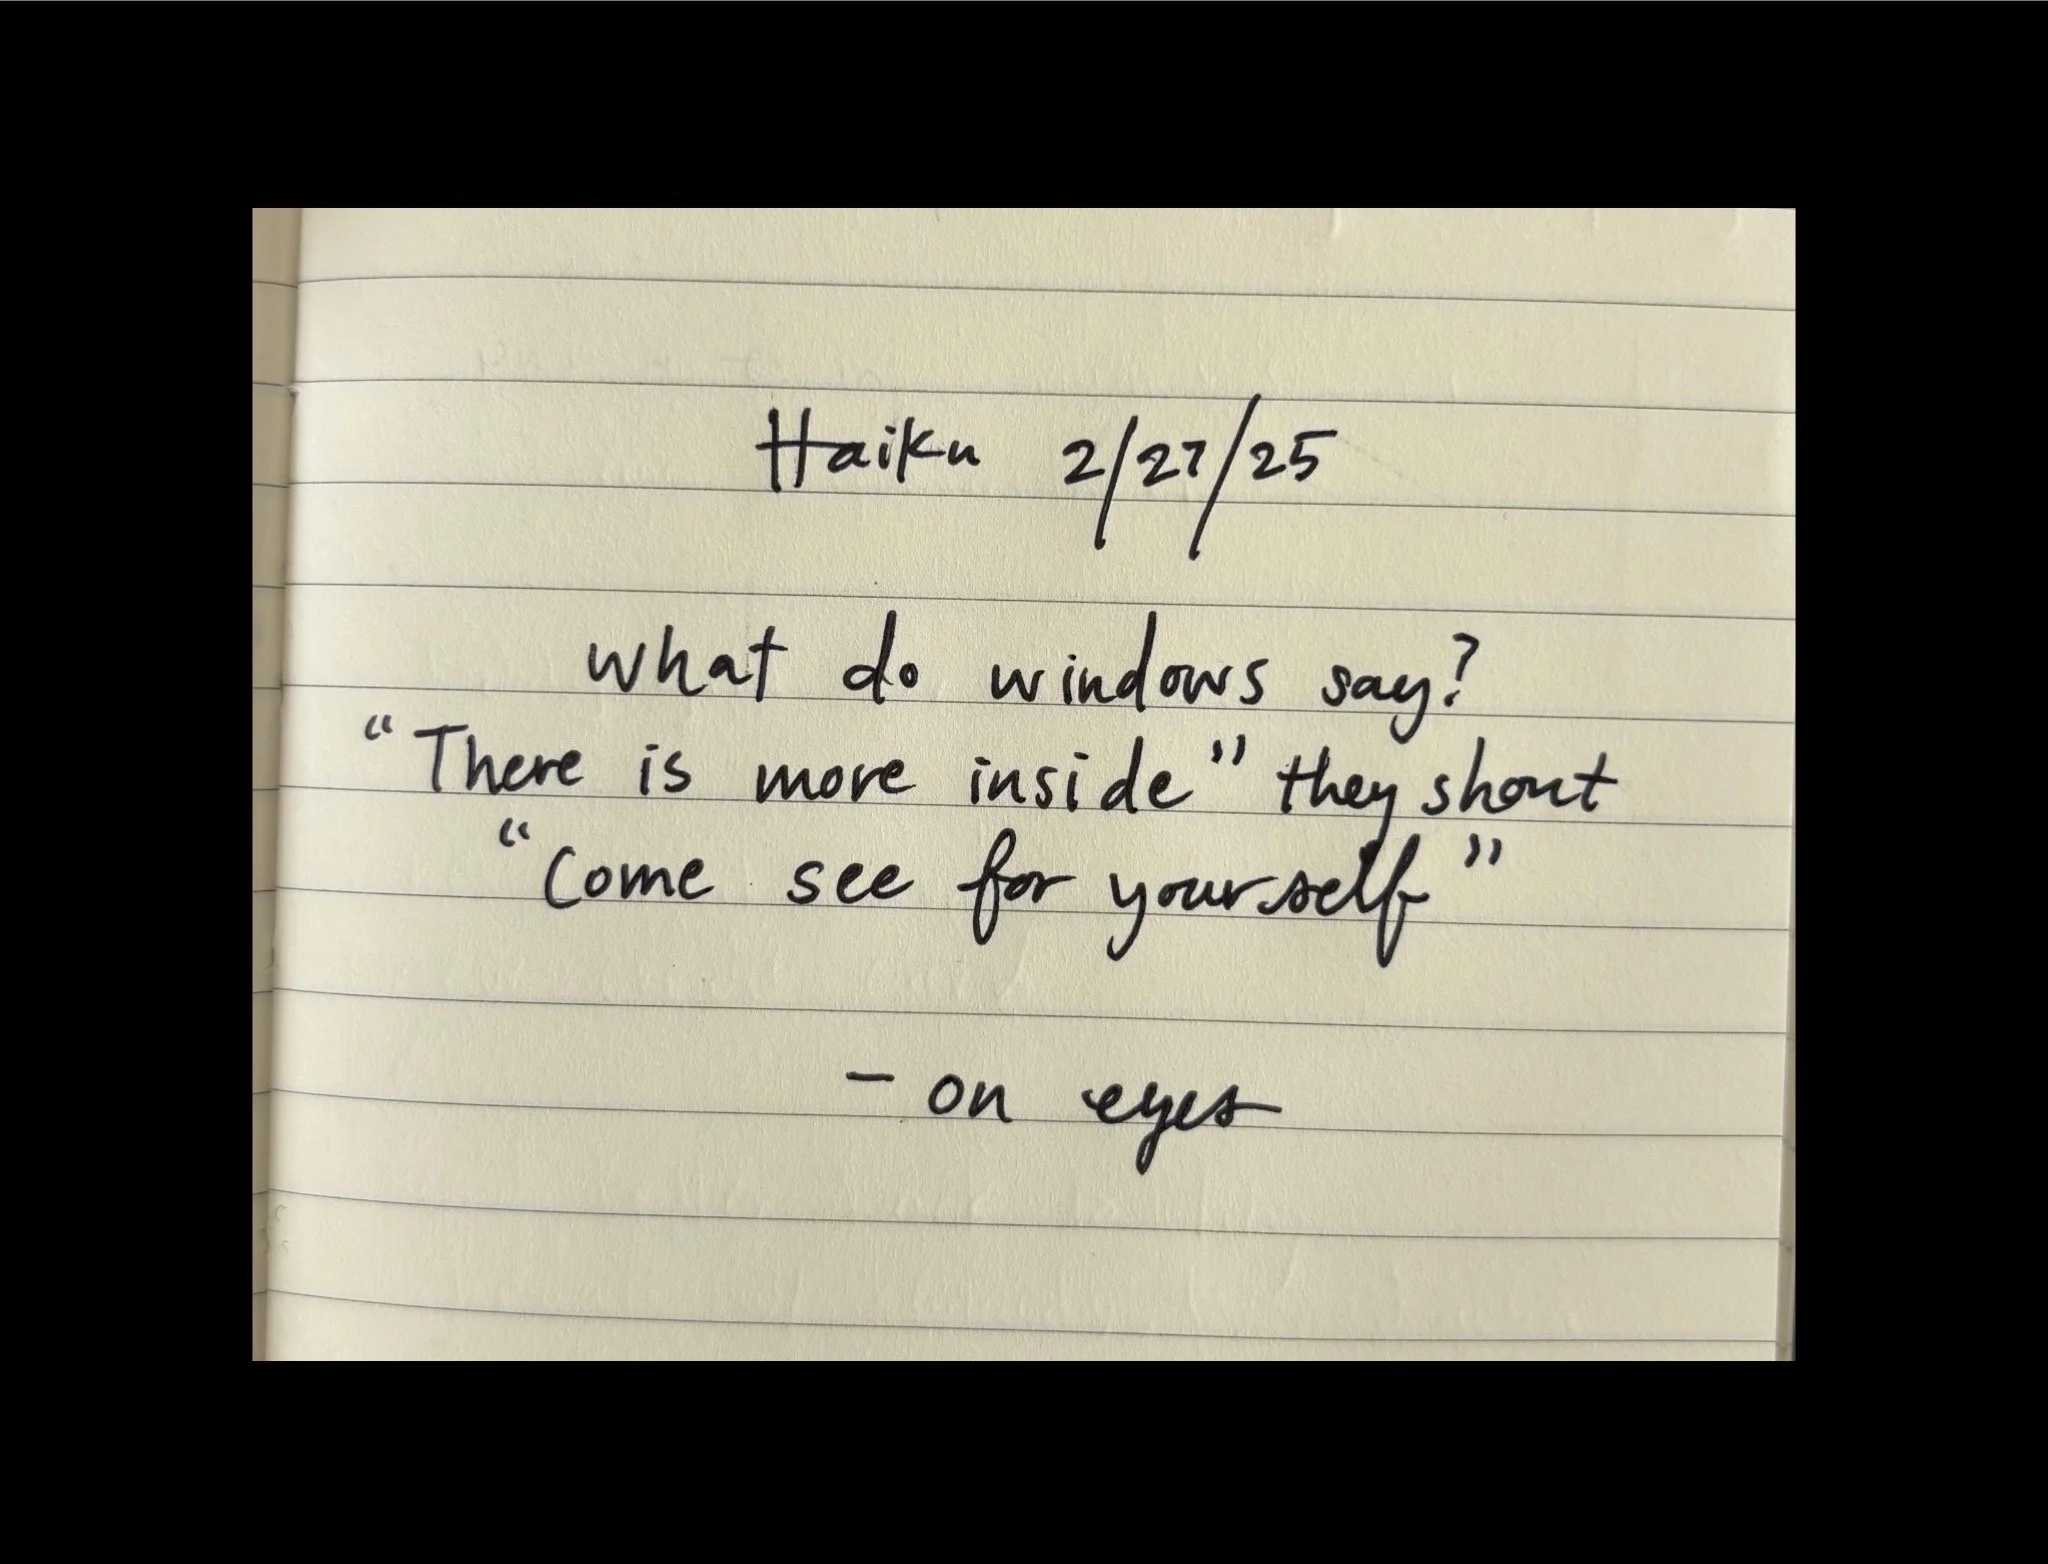 Haiku 2/27/25
what do windows say?
“There is more inside” they shout
“Come see for yourself”
- on eyes